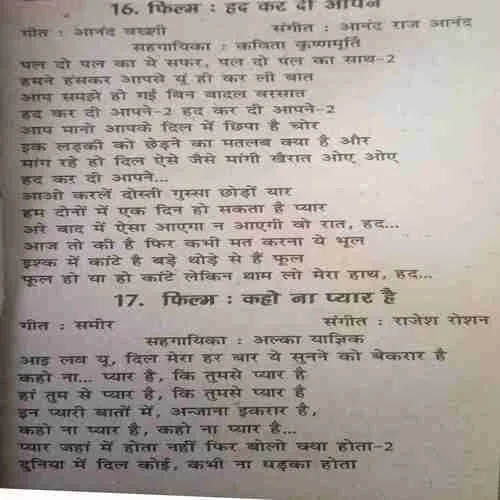 16. फिल्म : हद कर दी आपने
गीत : आनंद बख्शी संगीत : आनंद राज आनंद
सहगायिका : कविता कृष्णमूर्ति
पल दो पल का ये सफर, पल दो पल का साथ-2
हमने हंसकर आपसे यूं ही कर ली बात
आप समझे हो गई बिन बादल बरसात
हद कर दी आपने-2 हद कर दी आपने-2
आप मानो आपके दिल में छिपा है चोर
इक लड़की को छेड़ने का मतलब क्या है और
मांग रहे हो दिल ऐसे जैसे मांगी खैरात ओए ओए
हद कर दी आपने...
आओ करलें दोस्ती गुस्सा छोड़ों यार
हम दोनों में एक दिन हो सकता है प्यार
अरे बाद में ऐसा आएगा न आएगी वो रात, हद...
आज तो की है फिर कभी मत करना ये भूल
इश्क में कांटे है बड़े थोड़े से हैं फूल
फूल हो या हो कांटे लेकिन थाम लो मेरा हाथ, हद...
17. फिल्म : कहो ना प्यार है
गीत : समीर संगीत : राजेश रोशन
सहगायिका : अल्का याज्ञिक
आइ लव यू, दिल मेरा हर बार ये सुनने को बेकरार है
कहो ना... प्यार है, कि तुमसे प्यार है
हां तुम से प्यार है, कि तुमसे प्यार है
इन प्यारी बातों में, अन्जाना इकरार है,
कहो ना प्यार है, कहो ना प्यार है...
प्यार जहां में होता नहीं फिर बोलो क्या होता-2
दुनिया में दिल कोई, कभी ना धड़का होता